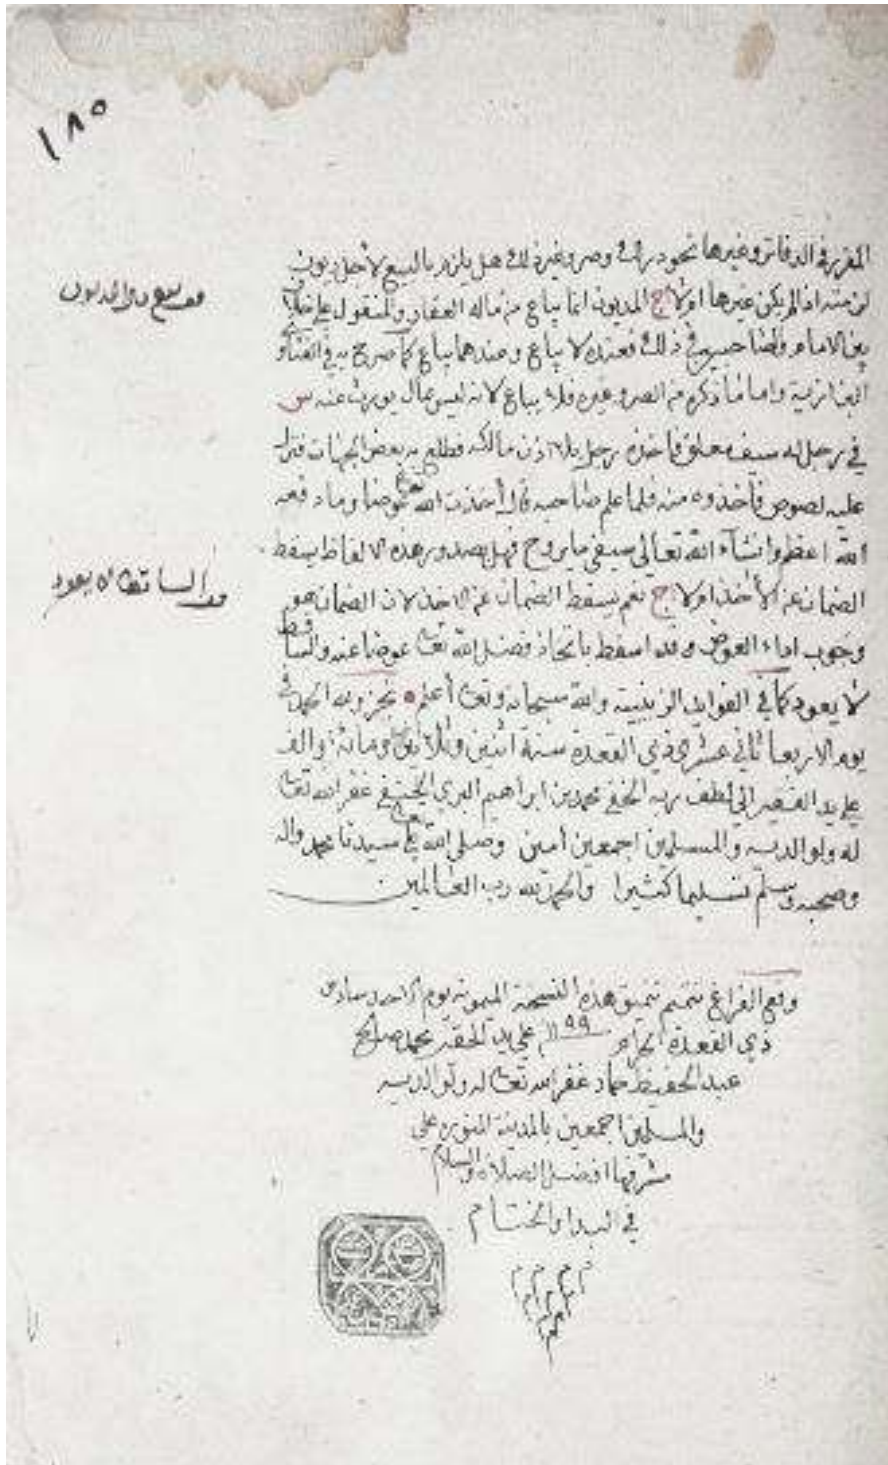 ١٨٥
المقرر في الدفاتر وغيرها نحو دراك وصر وغير ذلك هل يلزم بالبيع لاجل ديون
لزمته اذا لم يكن غيرها ام لا ج المديون انما يباع من ماله العقار والمنقول على خلاف
بين الامام وصاحبيه في ذلك فعنده لا يباع وعندهما يباع كما صرح به في الفتاوى
البزازية واما ما ذكر من الصر وغيره فلا يباع لانه ليس بمال يورث عنه س
في رجل له سيف معلق فاخذه رجل بلا اذن مالكه فطلع به بعض الجهات فنزل
عليه لصوص فأخذوه منه فلما علم صاحبه قال أخذت الله تعالى عوضا وما دفعه
الله اعظم وانشآء الله تعالى سيفي ما يروح فهل بصدور هذه الالفاظ يسقط
الضمان عن الأخذ ام لا ج نعم يسقط الضمان عن الاخذ لان الضمان هو
وجوب اداء العوض وقد اسقط باتخاذ فضل الله تعا عوضا عنه والساقط
لا يعود كما في الفوايد الزينية والله سبحانه وتعا أعلم ه نجز ولله الحمد في
يوم الاربعا ثاني عشري ذي القعدة سنة اثنين وثلاثين ومائة والف
على يد الفقير الى لطف ربه الخفي محمد بن ابراهيم البري الحنيفي غفر الله تعا
له ولوالديه والمسلمين اجمعين أمين وصلى الله تعالى على سيدنا محمد واله
وصحبه وسلم تسليما كثيرا والحمد لله رب العالمين
الساقط لا يعود
وقع الفراغ تتميم تنميق هذه النسخة الميمونة يوم الاحد سادس
ذي القعدة الحرام ١١٩٩ على يد الحقير محمد صالح
عبد الحفيظ حماد غفر الله تعا له ولوالديه
والمسلمين اجمعين بالمدينة المنوره على
مشرفها افضل الصلاة والسلام
في البدا والختام
م م م م
م م م
م م
م